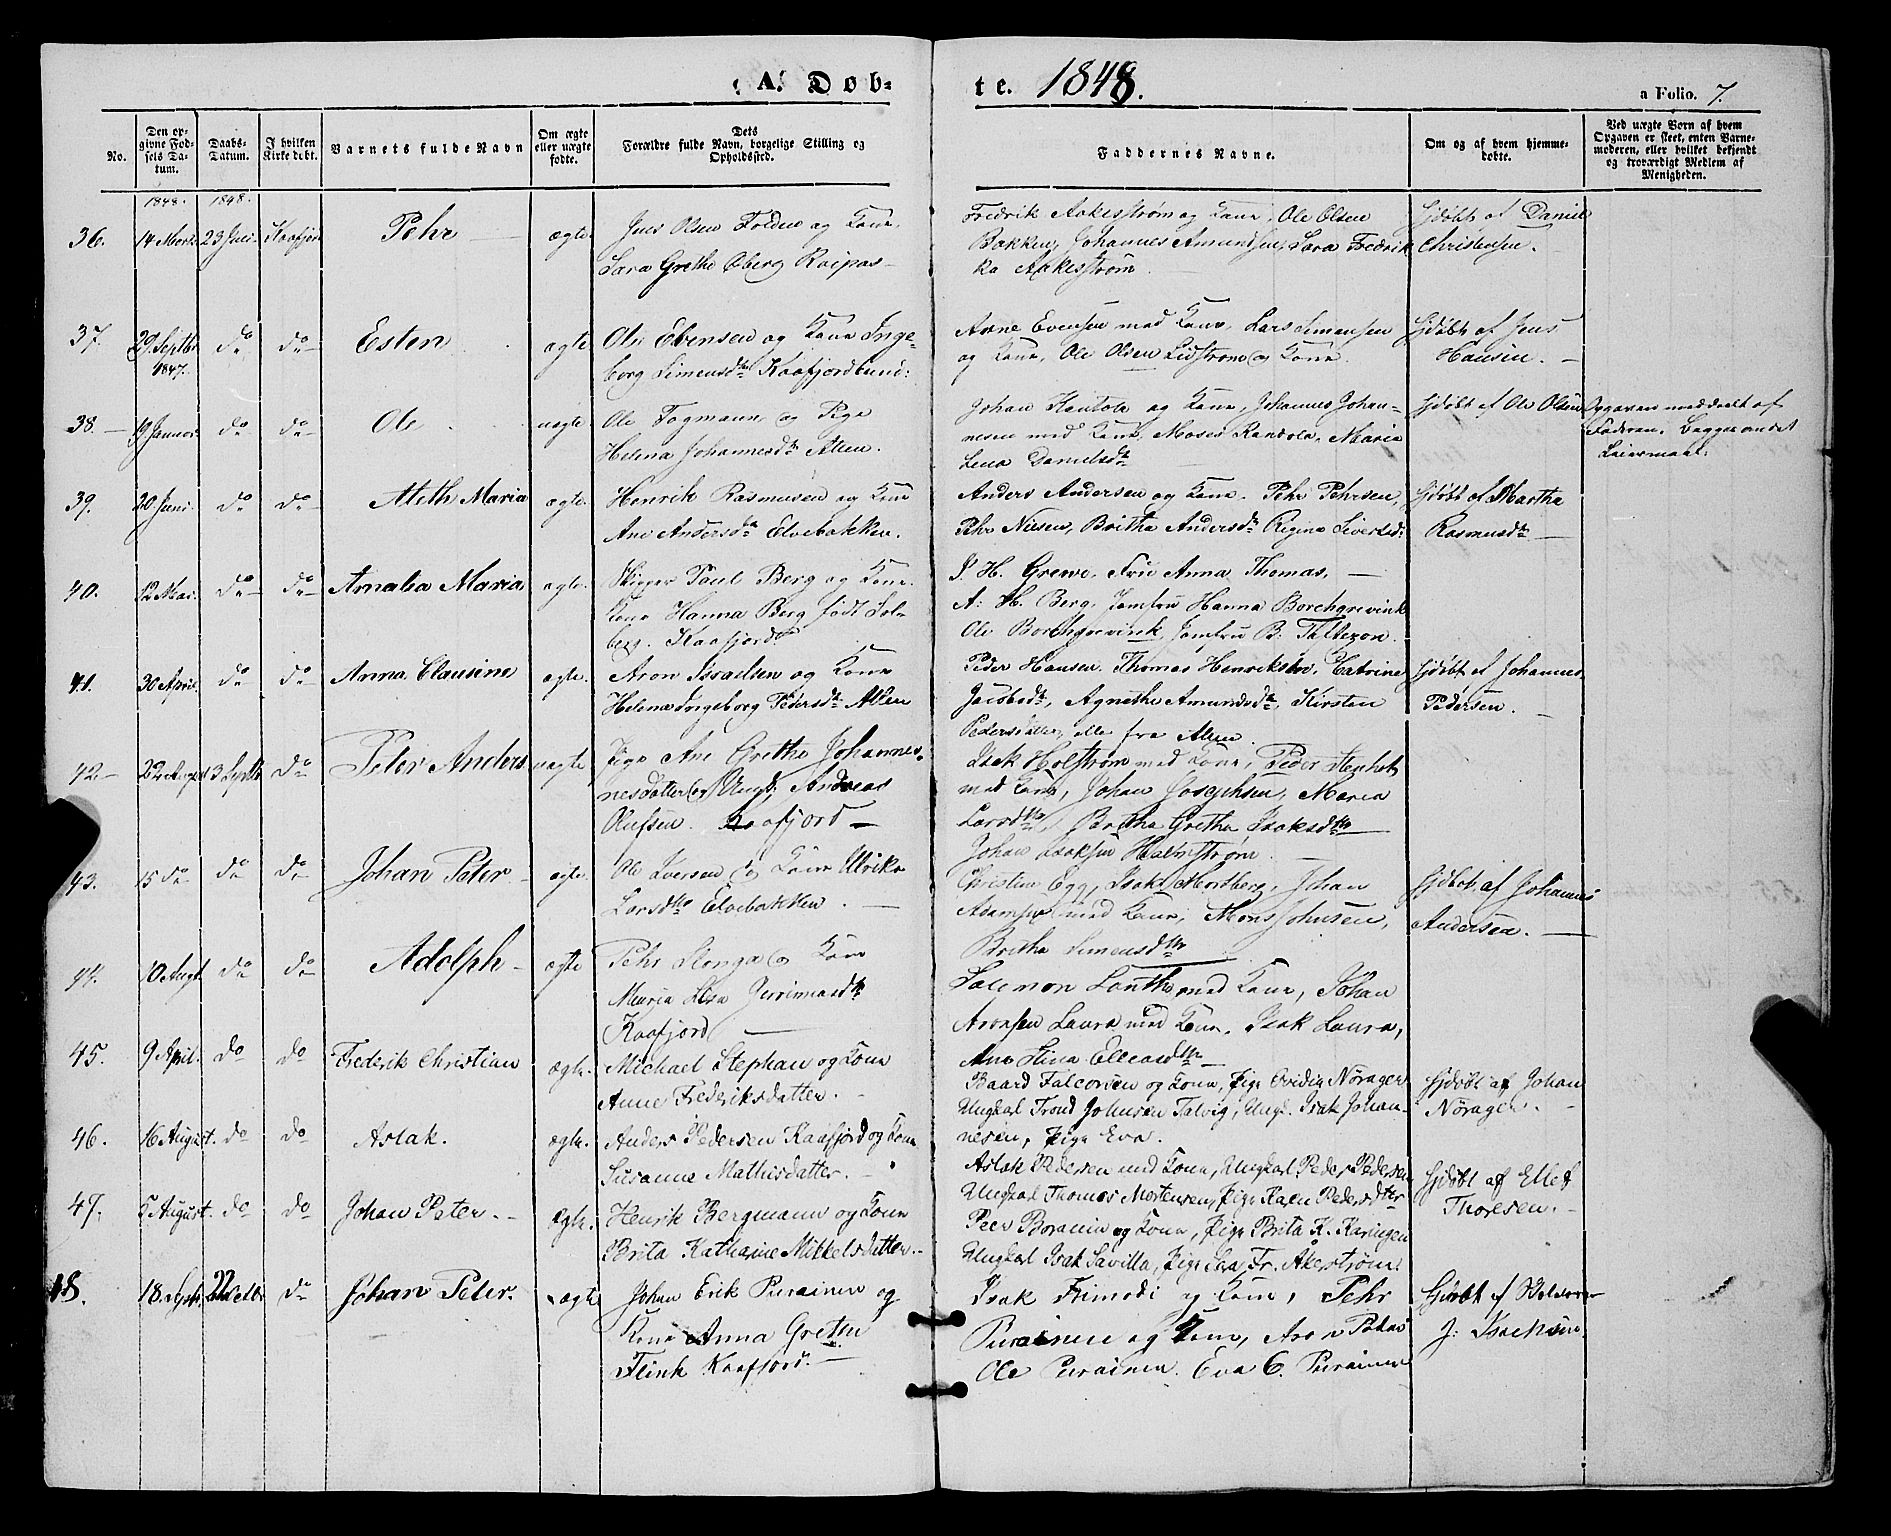 A. Døb-
te. 1848.
a Folio. 7.
No.
Den op-
givne Fød-
sels Da-
tum.
Daabs-
Datum.
I hvilken
Kirke døbt.
Barnets fulde Navn
Om ægte
eller uægte
fødte.
Dets
Forældre fulde Navn, borgelige Stilling og
Opholdssted.
Faddernes Navne.
Om og af hvem hjemme-
døbte.
Ved uægte Børn af hvem
Opgaven er skeet, enten Barne-
moderen, eller hvilket bekjendt
og troværdigt Medlem af
Menigheden.
1848. 1848.
36. 14 Marts 23 Juli Kaafjord Pehr ægte
Jens Olsen Folden og Kone
Sara Grethe Øberg Raipas
Fredrik Aakesstrøm og Kone, Ole Olsen
Bakken, Johannes Amundsen, Sara Fredrik
ka Aakesstrøm
Hjdøbt af Daniel
Christensen.
37. 29 Septbr 1847. do do Esten ægte
Ole Evensen og Kone Inge-
borg Simensdtr Kaafjordbund:
Arne Evensen med Kone, Lars Simensen
og Kone, Ole Olsen Lidstrøm og Kone.
Hjdøbt af Jens
Hansen.
38. 19 Januar do do Ole uægte
Ole Fogmann og Pige
Helena Johannesdtr Alten.
Johan Kentola og Kone, Johannes Johan-
nesen med Kone, Moses Randola, Maria
Lena Danielsdtr
Hjdøbt af Ole Olsen
Opgaven meddeelt af
Faderen. Begges andet
Leiermaal.
39. 20 Juni do do Aleth Maria ægte
Henrik Rasmusen og Kone
Ane Andersdtr Elvebakken.
Anders Andersen og Kone. Pehr Pehrsen,
Pehr Nilsen, Britha Andersdtr Regine Sivertsd:
Hjdøbt af Martha
Rasmusdtr
40. 12 Mai do do Amalia Maria ægte
Skipper Paul Berg og Kone
Kone Hanna Berg født Sol-
berg. Kaafjord
P. H. Grewe, Fru Anna Thomas,
A: H. Berg, Jomfru Hanna Borchgrevink
Ole Borchgrevink, Jomfru B: Taltezon.
41. 30 April do do Anna Clausine ægte
Aron Israelsen og Kone
Helena Ingeborg Pedersdtr Alten
Peder Hansen, Thomas Henriksen, Catrine
Jacobsdtr, Agnethe Amundsdtr, Kirsten
Pedersdatter, alle fra Alten
Hjdøbt af Johannes
Pedersen.
42. 22 August 3 Septbr do Peter Anders uægte
Pige Ane Grethe Johannes-
nesdatter og Ungk. Andreas
Olufsen. Kaafjord
Isak Holstrøm med Kone, Peder Stenhot
med Kone, Johan Josephsen, Maria
Larsdtr, Britha Gretha Isaksdtr
Johan Isaksen Halmstrøm
43. 15 do do do Johan Peter ægte
Ole Iversen og Kone Ulrike
Larsdtr Elvebakken.
Christen Egg, Isak Mortberg, Johan
Adamsen med Kone, Mons Johnsen,
Britha Simensdtr
Hjdøbt af Johannes
Andersen.
44. 10 Augt do do Adolph ægte
Pehr Slonga og Kone
Maria Lisa Jerrimiasdtr
Kaafjord
Salomon Lantho med Kone, Johan
Aronsen Laura med Kone, Isak Laura,
Ane Stina Elleasdtr
45. 9 April. do do Frederik Christian ægte.
Michael Stephan og Kone
Anne Frederiksdatter.
Baard Falcorsen og Kone, Pige Ovidia Nørager
Ungkarl Trond Johnsen Talvig, Ungk. Isak Johan-
nesen, Pige Eva.
Hjdøbt af Johan
Nørager.
46. 16 August. do do Aslak. ægte.
Anders Pedersen Kaafjord og Kone
Susanne Mathisdatter.
Aslak Pedersen med Kone, Ungkarl Peder Pedersen
Ungkarl Thomas Mortensen, Pige Karen Pedersdtr
Hjdøbt af Ellef
Thoresen.
47. 5 August. do do Johan Peter. Ægte.
Henrik Bergmann og Kone
Brita Kathrine Mikkelsdatter.
Peer Boranin og Kone, Pige Brita K. Karingen
Ungkarl Isak Savilla, Pige Sara Fr. Akerstrøm.
48. 18 Septbr 22 Octbr do Johan Peter. ægte
Johan Erik Purainen og
Kone Anna Grethe
Flink Kaafjord.
Isak Frimodi og Kone, Pehr
Purainen og Kone, Aron
Ole Purainen. Eva C. Purainen
Hjdøbt af
J: Isachsen.